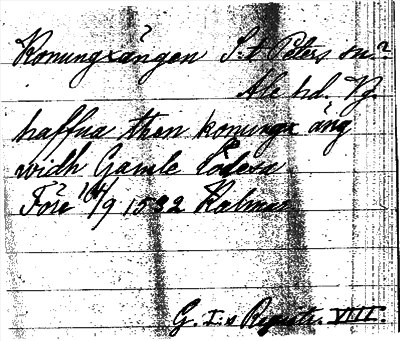 Konungxängen S:t Peters sn?
Ale hd. Vg
haffua then konunga äng
widh Gamle Lödese
Före 16/9 1532 Kalmar
G. I:s Registr. VIII.